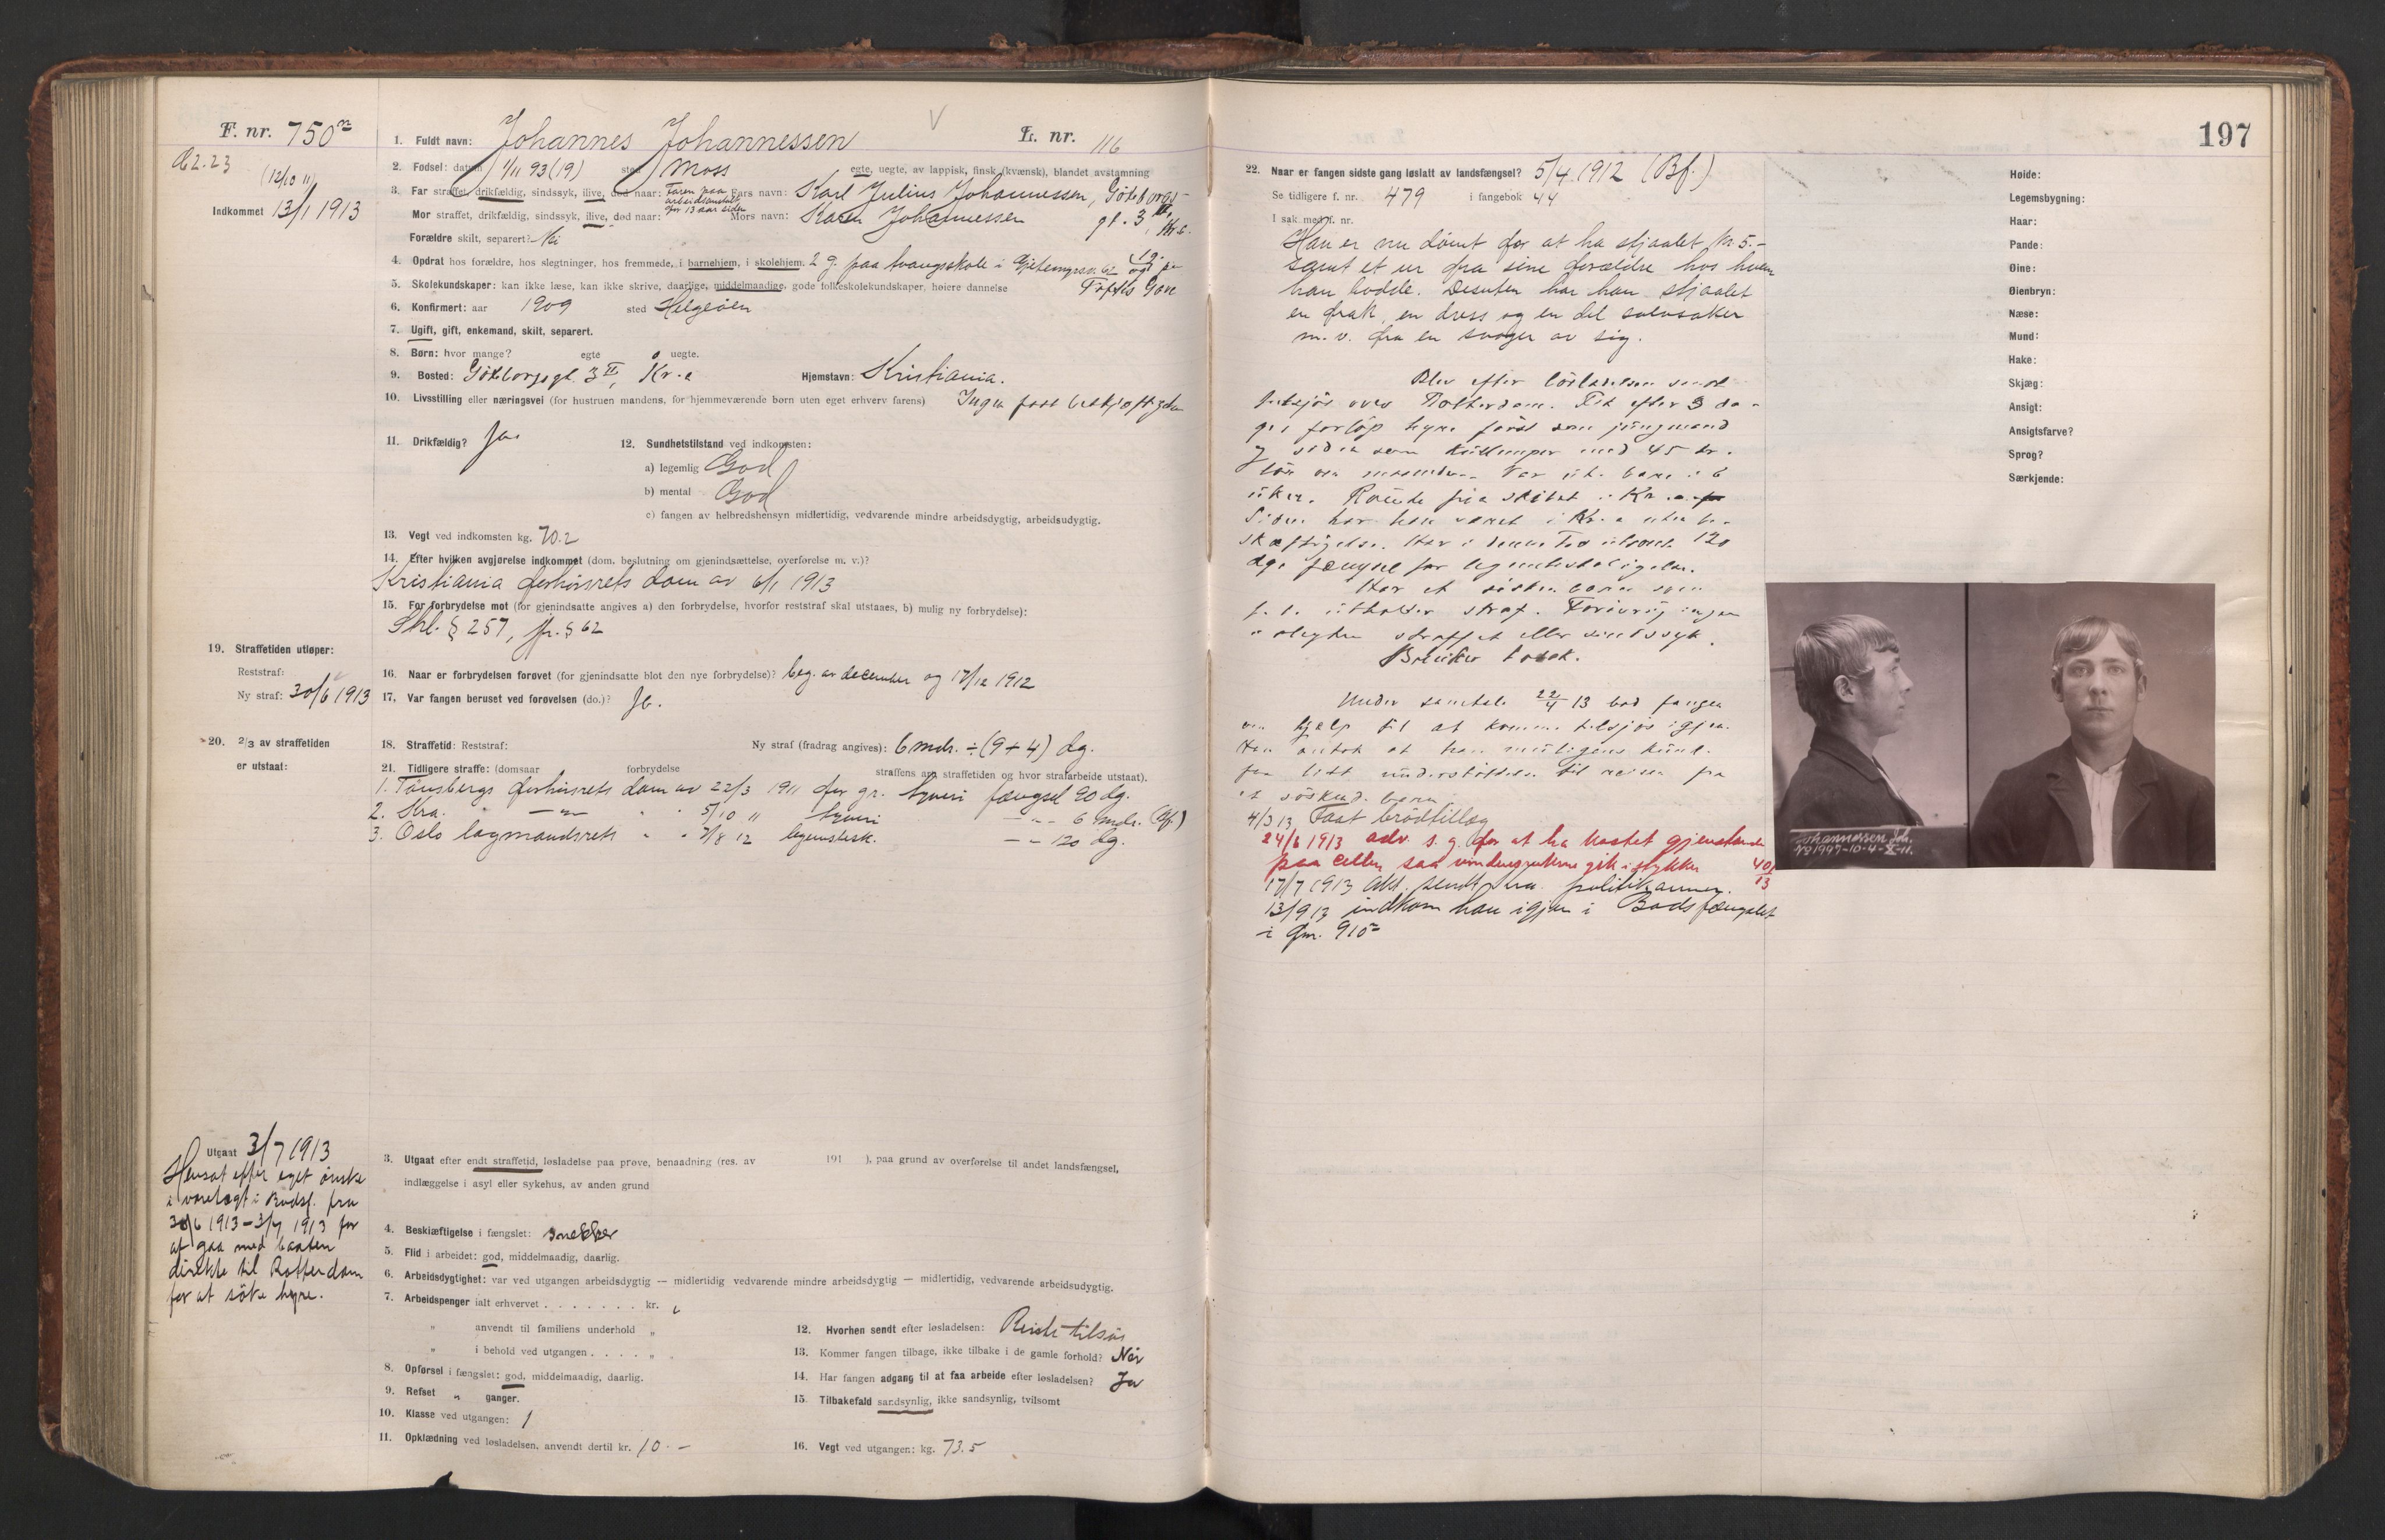 F. nr. 750
C2.23
(12/10 11)
Indkommet 13/1 1913
1. Fuldt navn: Johannes Johannessen
L. nr. 116
2. Fødsel: datum 1/11 93 (19) sted Moss egte, uegte, av lappisk, finsk (kvænsk), blandet avstamning
3. Far straffet, drikfældig, sindssyk, ilive, død naar: Faren paa arbeidsanstalt for 13 aar siden Fars navn: Karl Julius Johannessen, Göteborgs-
Mor straffet, drikfældig, sindssyk, ilive, død naar: Mors navn: Karen Johannessen gt. 3 III, Kr.a.
Forældre skilt, separert? Nei
4. Opdrat hos forældre, hos slegtninger, hos fremmede, i barnehjem, i skolehjem. 2 g. paa tvangsskole i Gjetemyrsv. 62 og 1 g. paa
5. Skolekundskaper: kan ikke læse, kan ikke skrive, daarlige, middelmaadige, gode folkeskolekundskaper, høiere dannelse Toftes Gave
6. Konfirmert: aar 1909 sted Helgeöen
7. Ugift, gift, enkemand, skilt, separert.
8. Børn: hvor mange? egte 0 uegte.
9. Bosted: Göteborgsgt. 3 II, Kr.a Hjemstavn: Kristiania.
10. Livsstilling eller næringsvei (for hustruen mandens, for hjemmeværende børn uten eget erhverv farens) Ingen fast beskjæftigelse
11. Drikfældig? Ja 12. Sundhetstilstand ved indkomsten:
a) legemlig God
b) mental God
c) fangen av helbredshensyn midlertidig, vedvarende mindre arbeidsdygtig, arbeidsudygtig.
13. Vegt ved indkomsten kg. 70.2
14. Efter hvilken avgjørelse indkommet (dom, beslutning om gjenindsættelse, overførelse m. v.)?
Kristiania forhörsrets dom av 6/1 1913
15. For forbrydelse mot (for gjenindsatte angives a) den forbrydelse, hvorfor reststraf skal utstaaes, b) mulig ny forbrydelse):
Strl. § 257, jfr. § 62
16. Naar er forbrydelsen forøvet (for gjenindsatte blot den nye forbrydelse)? beg. av december og 17/12 1912
17. Var fangen beruset ved forøvelsen (do.)? Ja.
18. Straffetid: Reststraf: Ny straf (fradrag angives): 6 mdr. ÷ (9 + 4) dg.
19. Straffetiden utløper:
Reststraf:
Ny straf: 30/6 1913
20. 2/3 av straffetiden
er utstaat:
21. Tidligere straffe: (domsaar forbrydelse straffens art, straffetiden og hvor strafarbeide utstaat).
1. Tönsbergs forhörsrets dom av 22/3 1911 for gr. tyveri fængsel 90 dg.
2. Kra. — " — " 5/10 11 tyveri — " — 6 mdr. (Bf.)
3. Oslo lagmandsrets " " 7/8 12 legemsbesk. — " — 120 dg.
Utgaat 3/7 1913
Hensat efter eget önske
i varetægt i Bodsf. fra
30/6 1913 – 3/7 1913 for
at gaa med baaten
direkte til Rotterdam
for at söke hyre.
3. Utgaat efter endt straffetid, løsladelse paa prøve, benaadning (res. av 191 ), paa grund av overførelse til andet landsfængsel,
indlæggelse i asyl eller sykehus, av anden grund
4. Beskjæftigelse i fængslet: snekker
5. Flid i arbeidet: god, middelmaadig, daarlig.
6. Arbeidsdygtighet: var ved utgangen arbeidsdygtig — midlertidig vedvarende mindre arbeidsdygtig — midlertidig, vedvarende arbeidsudygtig.
7. Arbeidspenger ialt erhvervet . . . . . . . kr.
" anvendt til familiens underhold "
" i behold ved utgangen . . . . "
8. Opførsel i fængslet: god, middelmaadig, daarlig.
9. Refset " ganger.
10. Klasse ved utgangen: 1
11. Opklædning ved løsladelsen, anvendt dertil kr. 10.–
12. Hvorhen sendt efter løsladelsen: Reiste tilsjös
13. Kommer fangen tilbage, ikke tilbake i de gamle forhold? Nei
14. Har fangen adgang til at faa arbeide efter løsladelsen? Ja
15. Tilbakefald sandsynlig, ikke sandsynlig, tvilsomt
16. Vegt ved utgangen: kg. 73.5
197
22. Naar er fangen sidste gang løslatt av landsfængsel? 5/4 1912 (Bf.)
Se tidligere f. nr. 479 i fangebok 44
I sak med f. nr.
Han er nu dömt for at ha stjaalet kr. 5.–
samt et ur fra sine forældre hos hvem
han bodde. Desuten har han stjaalet
en frak, en dress og en del sølvsaker
m. v. fra en svoger av sig.
Blev efter löslatelsen sendt
tilsjös over Rotterdam. Fik efter 3 da-
ges forlöp hyre först som jungmand
og siden som kullemper med 45 kr.
lön om maaneden. Var ute bare i 6
uker. Römte fra skibet i Kr.a.
Siden har han været i Kr.a uten be-
skæftigelse. Har i denne tid utsonet 120
dgs fængsel for legemsbeskadigelse.
Har et söskenbarn som
f. t. utholder straf. Forövrig ingen
i slegten straffet eller sindssyk.
Bruker tobak.
Under samtale 22/4 13 bad fangen
om hjælp til at komme tilsjös igjen.
Han antok at han muligens kunde
faa litt understöttelse til reisen fra
et söskendebarn
4/3 13 Faat brödtillæg
24/6 1913 adv. s. g. for at ha kastet gjenstande
paa cellen saa vindusrutene gik i stykker 40/13
17/7 1913 Akt. sendt Kra. politikammer.
13/9 13 indkom han igjen i Bodsfængslet
i fnr. 910
Høide:
Legemsbygning:
Haar:
Pande:
Øine:
Øienbryn:
Næse:
Mund:
Hake:
Skjæg:
Ansigt:
Ansigtsfarve?
Sprog?
Særkjende:
Johannessen, Joh.
No 1997-10-4-X-11.